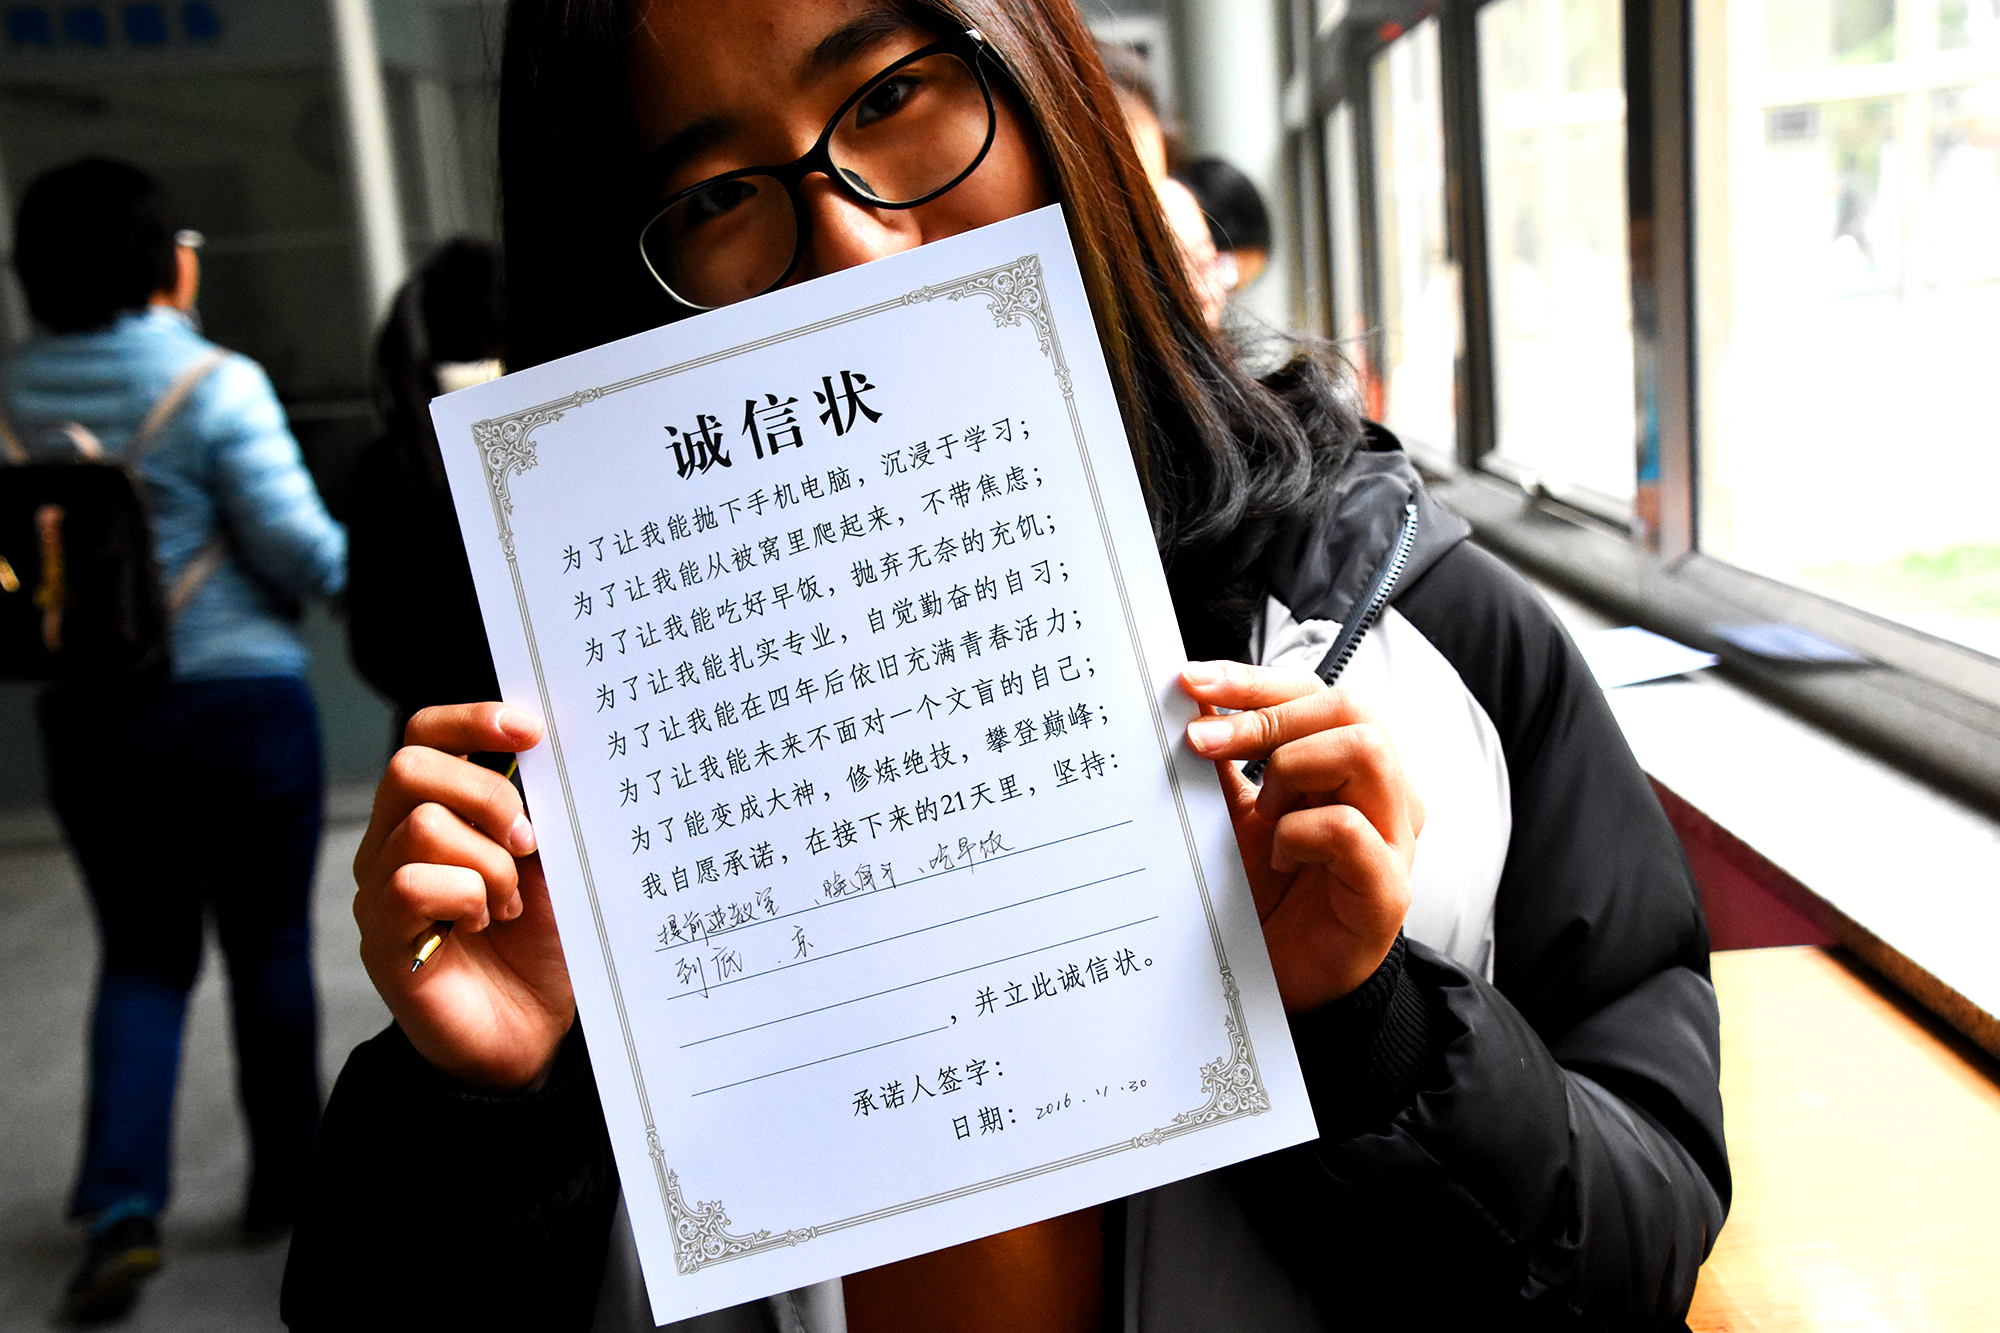 诚信状
为了让我能抛下手机电脑，沉浸于学习；
为了让我能从被窝里爬起来，不带焦虑；
为了让我能吃好早饭，抛弃无奈的充饥；
为了让我能扎实专业，自觉勤奋的自习；
为了让我能在四年后依旧充满青春活力；
为了让我能未来不面对一个文盲的自己；
为了能变成大神，修炼绝技，攀登巅峰；
我自愿承诺，在接下来的21天里，坚持：
提前进教室、晚自习、吃早饭
到底
，并立此诚信状。
承诺人签字：
日期：2016.11.30